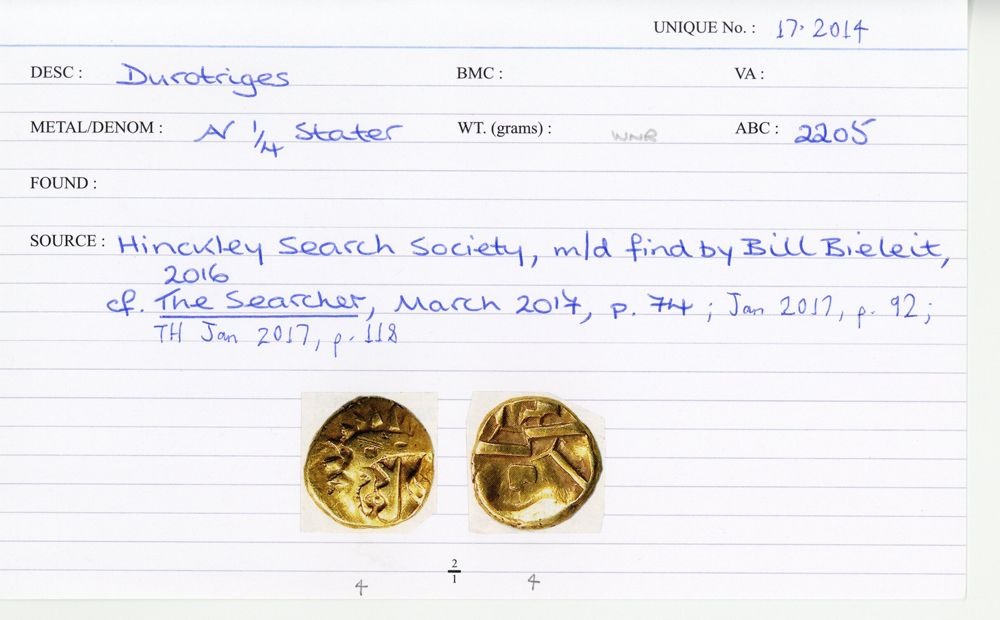 UNIQUE No. : 17. 2014
DESC : Durotriges BMC : VA :
METAL/DENOM : AV 1/4 Stater WT. (grams) : WNR ABC : 2205
FOUND :
SOURCE : Hinckley Search Society, m/d find by Bill Bieleit,
2016
cf. The Searcher, March 2017, p. 74 ; Jan 2017, p. 92 ;
TH Jan 2017, p. 118
2
1
4 4